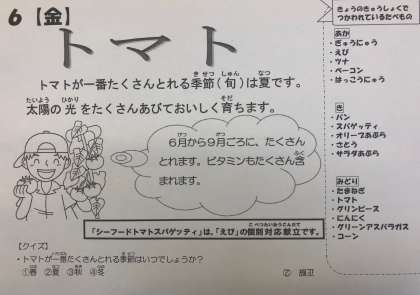 6【金】
トマト
トマトが一番たくさんとれる季節(旬)は夏です。
太陽の光をたくさんあびておいしく育ちます。
6月から9月ごろに、たくさん
とれます。ビタミンもたくさん含
まれます。
「シーフードトマトスパゲッティ」は、「えび」の個別対応献立です。
【クイズ】
・トマトが一番たくさんとれる季節はいつでしょうか？
①春 ②夏 ③秋 ④冬
きょうのきゅうしょくで
つかわれているたべもの
あか
・ぎゅうにゅう
・えび
・ツナ
・ベーコン
・はっこうにゅう
き
・パン
・スパゲッティ
・オリーブあぶら
・さとう
・サラダあぶら
みどり
・たまねぎ
・トマト
・グリンピース
・にんにく
・グリーンアスパラガス
・コーン